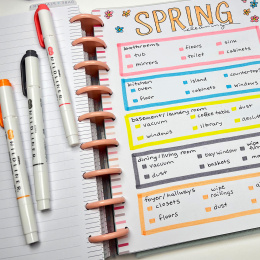 SPRING
cleaning
bathrooms
tub
floors
sink
mirrors
toilet
cabinets
kitchen
oven
island
countertops
floor
cabinets
windows
basement/laundry room
vacuum
coffee table
dust
windows
library
dining/living room
vacuum
bay window
dust
baskets
foyer/hallways
closets
wipe railings
floors
dust
MILDLINER
MILDLINER
MILDLINER